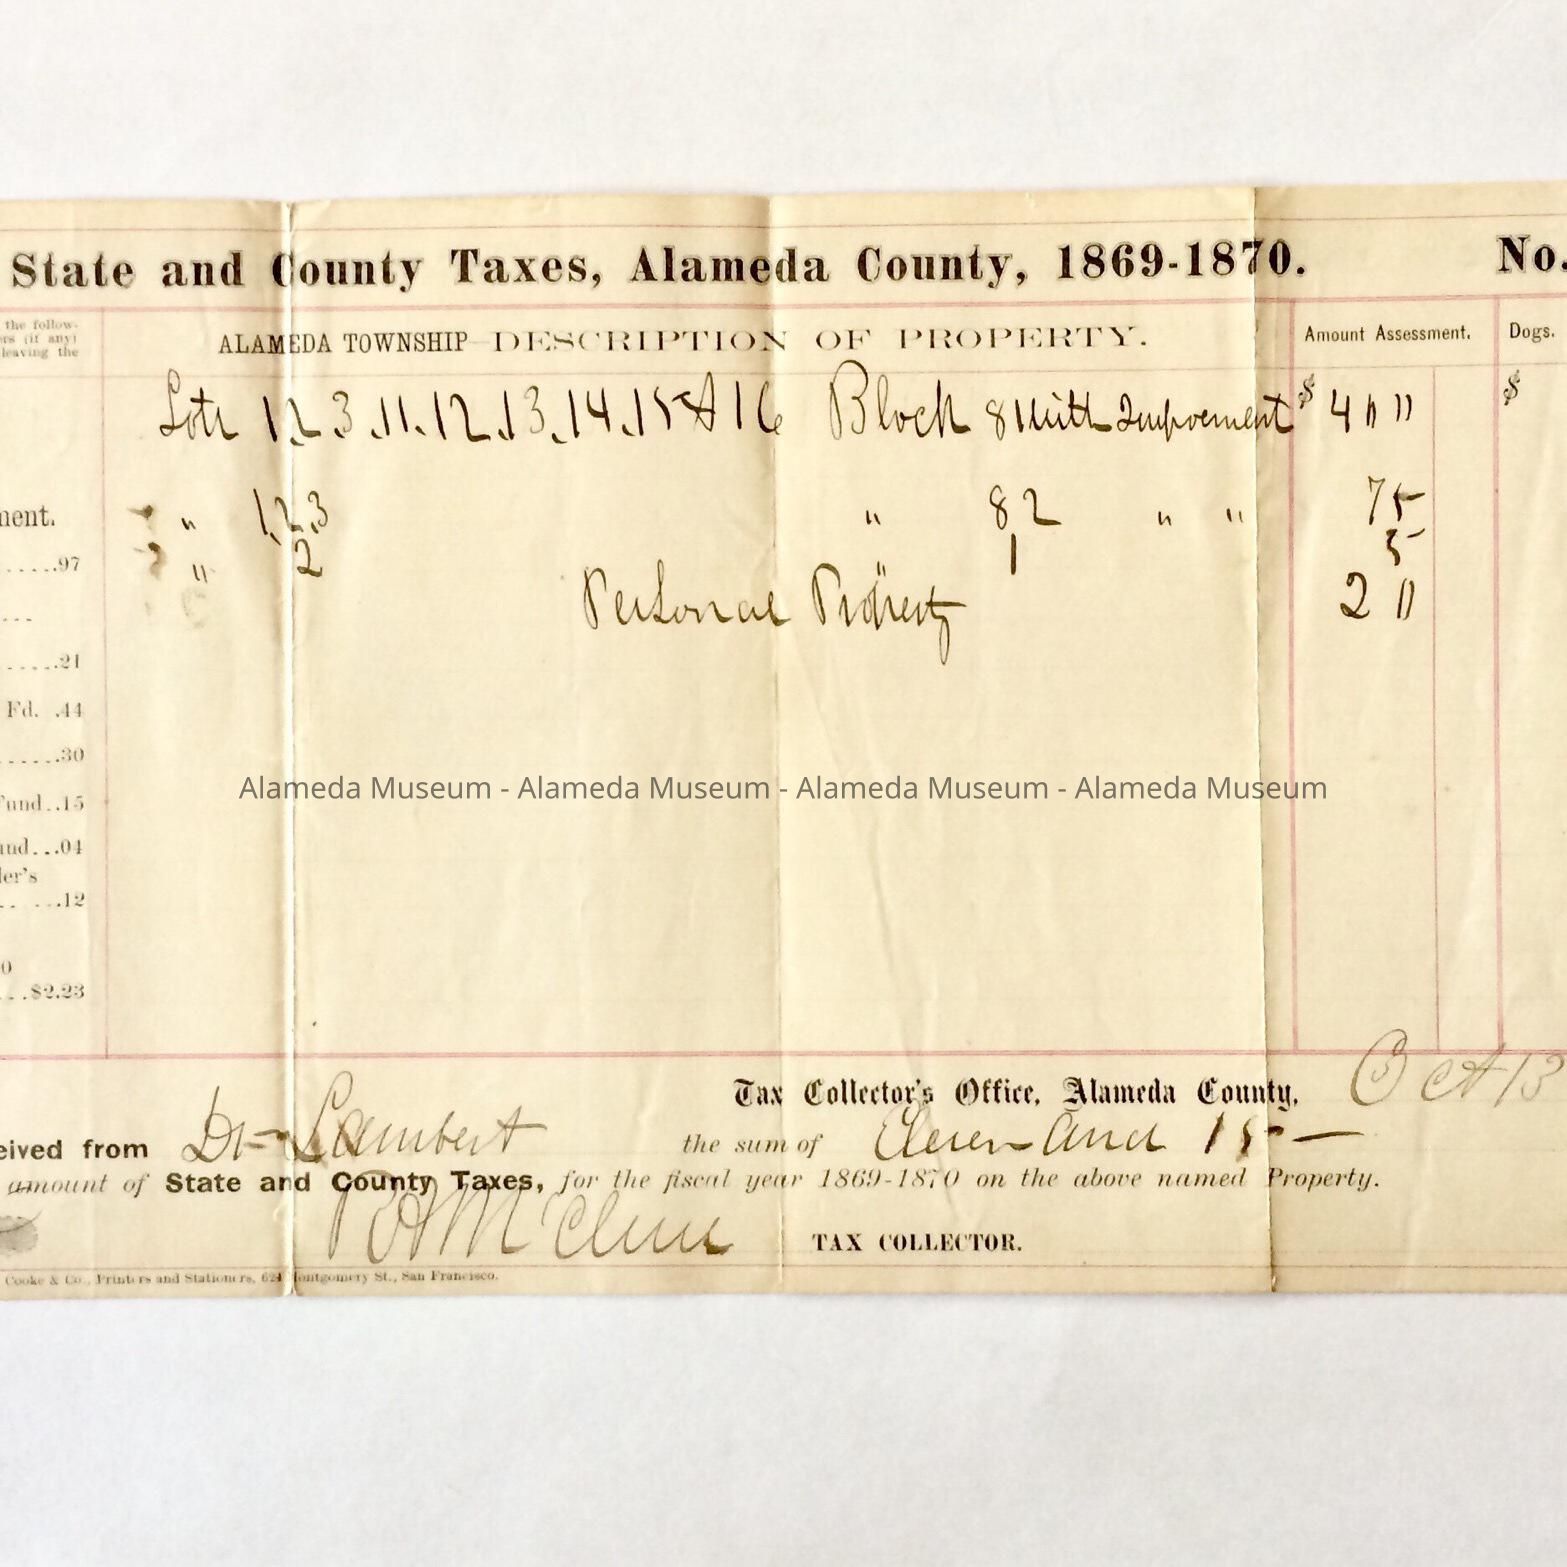 State and County Taxes, Alameda County, 1869-1870. No.
the follow-
ers (if any)
leaving the
ALAMEDA TOWNSHIP DESCRIPTION OF PROPERTY.
Amount Assessment.
Dogs.
Lots 1, 2, 3, 11, 12, 13, 14, 15 & 16 Block 81 with Improvement $ 4 " "
$
" 1, 2, 3 " 82 " " 75
" 2 " 1 5
Personal Property 2 "
ment.
.....97
...
....21
Fd. .44
.....30
Fund..15
und...04
ler's
.. ...12
0
...$2.23
Alameda Museum - Alameda Museum - Alameda Museum - Alameda Museum
Tax Collector's Office, Alameda County, Oct 13
eived from Dr Lambert the sum of Eleven and 15
amount of State and County Taxes, for the fiscal year 1869-1870 on the above named Property.
TAX COLLECTOR.
Cooke & Co., Printers and Stationers, 624 Montgomery St., San Francisco.